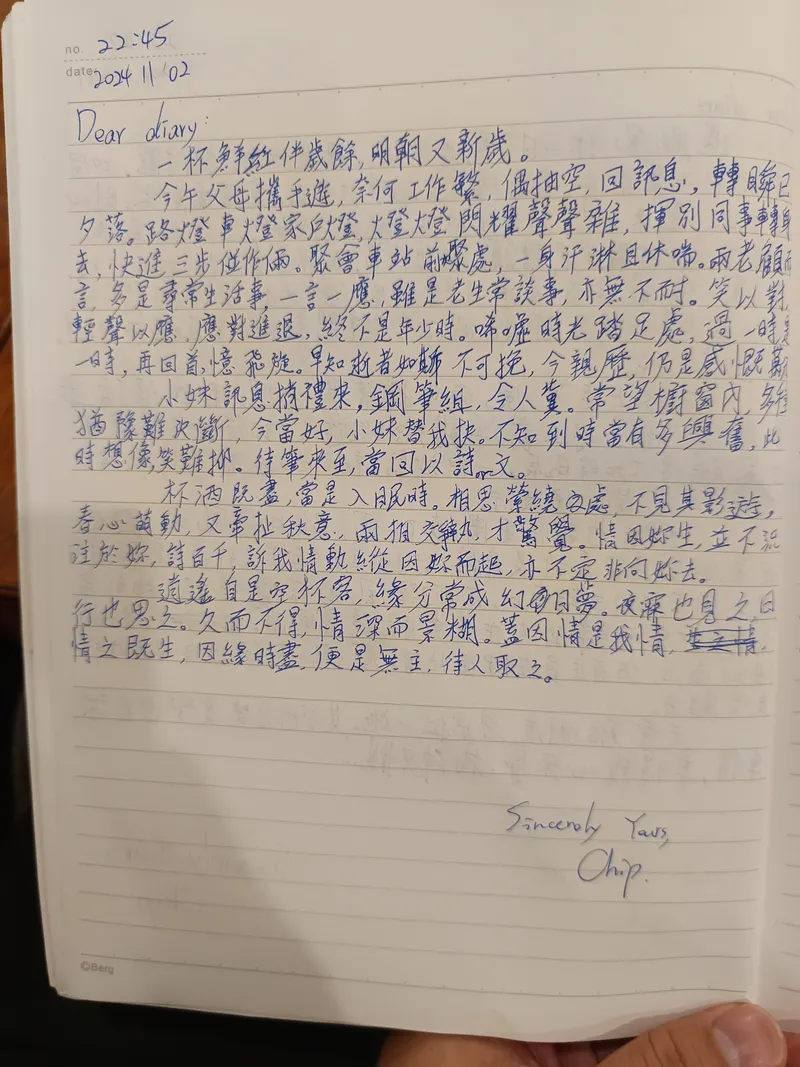 no. 22:45
date: 2024 11 02
Dear diary:
一杯鮮紅伴歲餘,明朝又新歲。
今午父母攜手遊,奈何工作繁,偶抽空,回訊息,轉瞬已
夕落。路燈車燈家戶燈,大燈大燈閃耀聲聲雜,揮別同事轉身
去,快進三步併作倆。聚會車站前聚處,一身汗淋且休喘。兩老顧而
言,多是尋常生活事,一言一應,雖是老生常談事,亦無不耐。笑以對
輕聲以應,應對進退,終不是年少時。唏噓時光踏足處,過一時
一時,再回首,憶飛旋。早知逝者如斯不可挽,今親歷,仍是感慨
小妹訊息捎禮來,鋼筆組,令人冀。常望櫥窗內,多
猶豫難決斷,今當好,小妹替我抉。不知到時當有多興奮,此
時想像,笑難抑。待筆來至,當回以詩or文。
杯酒既盡,當是入眠時。相思縈繞處,不見其影遊,
春心萌動,又牽扯秋意,兩相交,才驚覺。情因妳生,並不
注於妳,詩百千,訴我情動,縱從因妳而起,亦不定非向妳去。
逍遙自是空杯客,緣分常成幻日夢。夜寐也見之,日
行也思之。久而不得,情深而景糊。蓋因情是我情,
情之既生,因緣時盡,便是無主,待人取之。
Sincerely Yours,
Chip.
©Berg